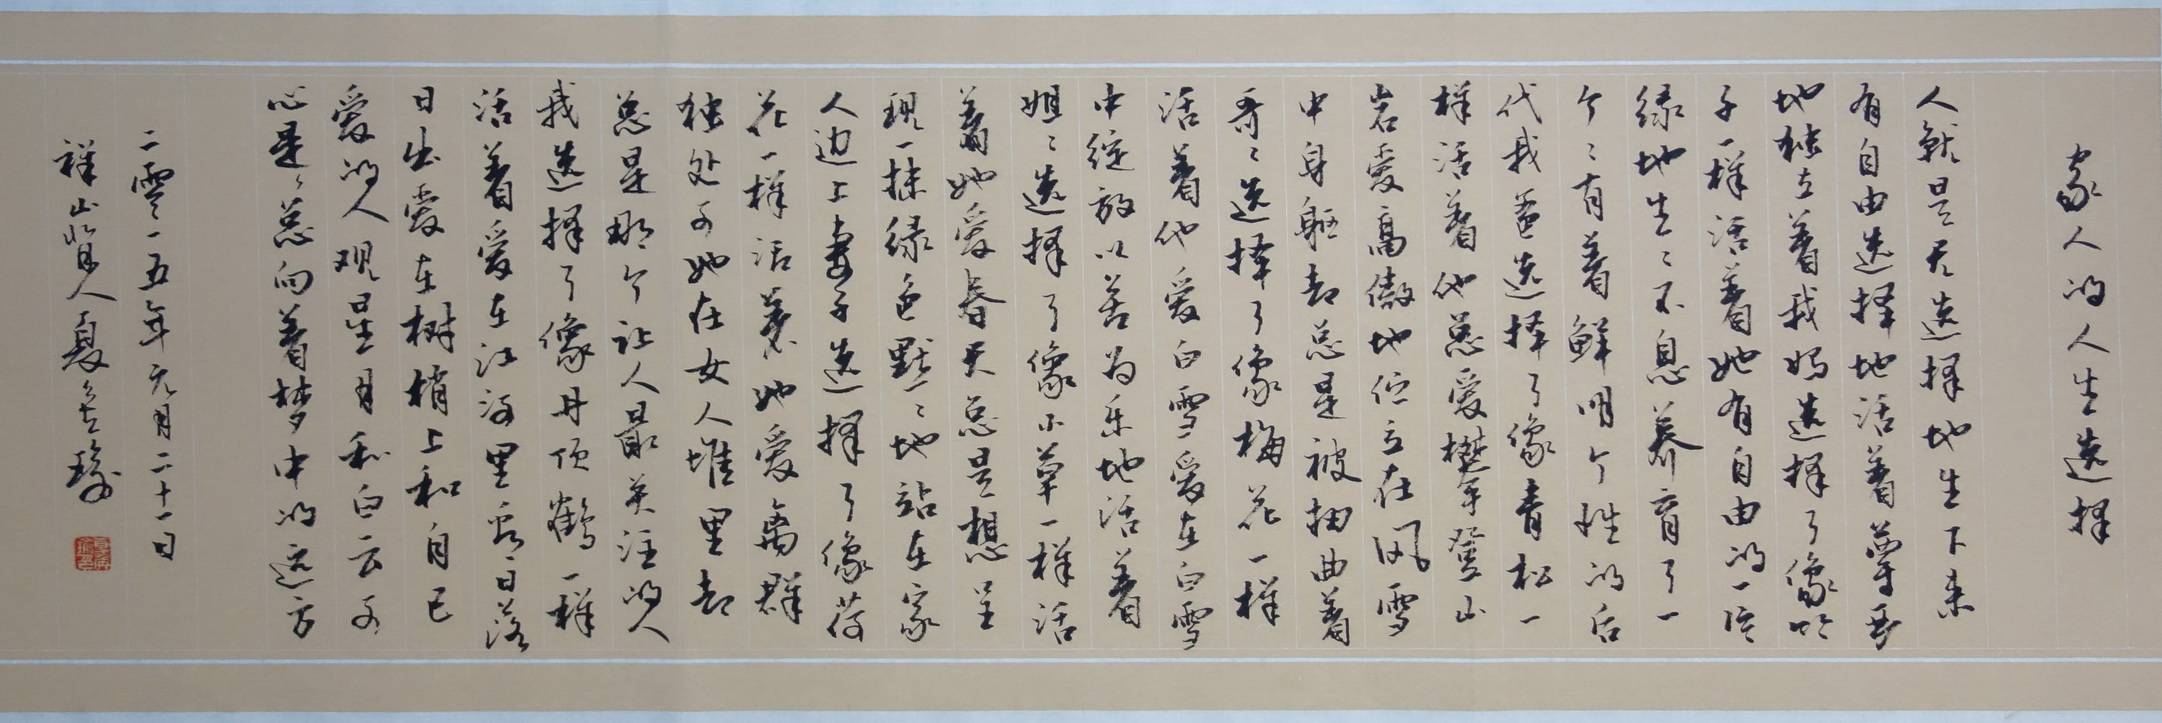 家人的人生选择
人就是天选择地生下来
有自由选择地活着尊母
地独立着我妈选择了像竹
子一样活着她有自由的一片
绿地生生不息养育了一
个个有着鲜明个性的后
代我爸选择了像青松一
样活着他总爱攀登山
岩爱高傲地伫立在风雪
中身躯却总是被扭曲着
哥哥选择了像梅花一样
活着他爱白雪爱在白雪
中绽放以苦为乐地活着
姐姐选择了像小草一样活
着她爱春天总是想呈
现一抹绿色默默地站在家
人边上妻子选择了像荷
花一样活着她爱离群
独处可她在女人堆里却
总是那个让人最关注的人
我选择了像丹顶鹤一样
活着爱在江河里看日落
日出爱在树梢上和自己
爱的人观星月和白云可
心是总向着梦中的远方
二零一五年元月二十一日
祥山 人夏 瑜